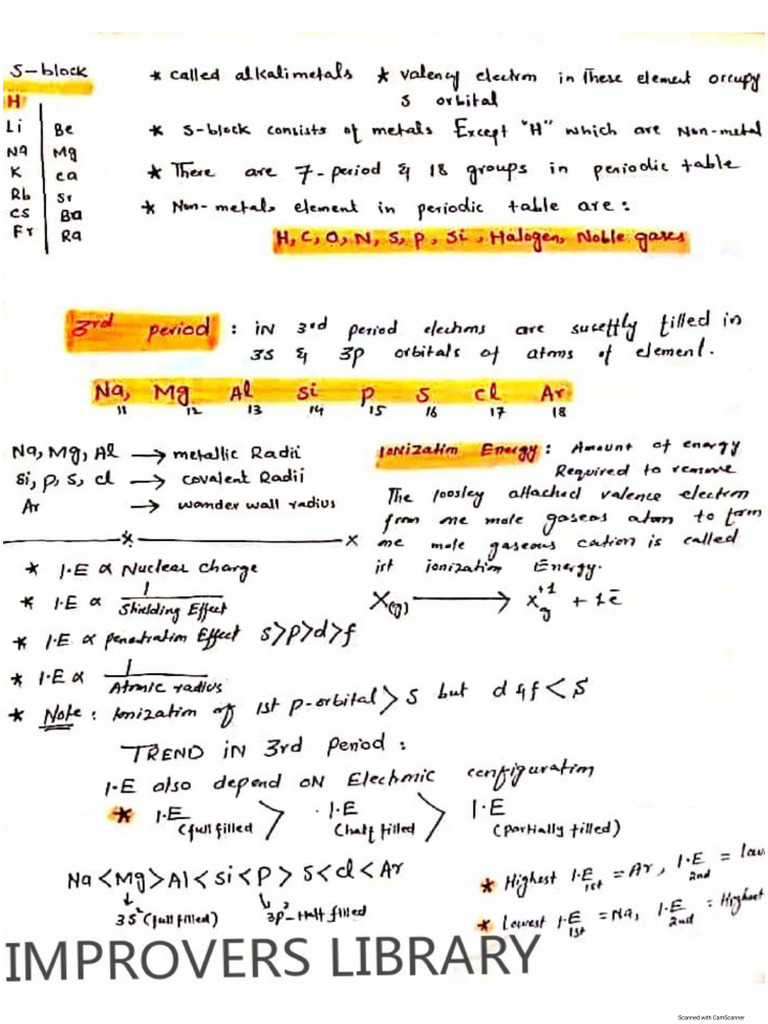 S-block * called alkalimetals * valency electron in These element occupy
S orbital
H
Li Be
Na Mg
K Ca
Rb Sr
Cs Ba
Fr Ra
* S-block consists of metals Except "H" which are Non-metal
* There are 7-period & 18 groups in periodic table
* Non-metals element in periodic table are:
H, C, O, N, S, P, Si, Halogen, Noble gases
3rd period : iN 3rd period are filled in
3s & 3p orbitals of atms of element.
Na, Mg Al Si P S Cl Ar
11 12 13 14 15 16 17 18
Na, Mg, Al → metallic Radii
Si, P, S, Cl → covalent Radii
Ar → wander wall radius
* I.E ∝ Nuclear charge
* I.E ∝ 1
Shielding Effect
* I.E ∝ penetration Effect s>p>d>f
* I.E ∝ 1
Atomic radius
* Note: Ionization of 1st p-orbital > S but d & f < S
Ionization Energy: Amount of energy
Required to remove
The loosley attached valence electron
from one mole gaseos atom to form
one mole gaseous cation is called
ist ionization Energy.
X(g) → X+1 g + 1ē
TREND iN 3rd Period:
I.E also depend oN Electronic configuration
* I.E > I.E > I.E
(full filled) (half filled) (partially filled)
Na<Mg>Al<Si<P>S<Cl<Ar
↓ ↓
3S²(full filled) 3p³-Half filled
* Highest I.E 1st = Ar, I.E 2nd =
* Lowest I.E 1st = Na, I.E 2nd = Highest
IMPROVERS LIBRARY
Scanned with CamScanner